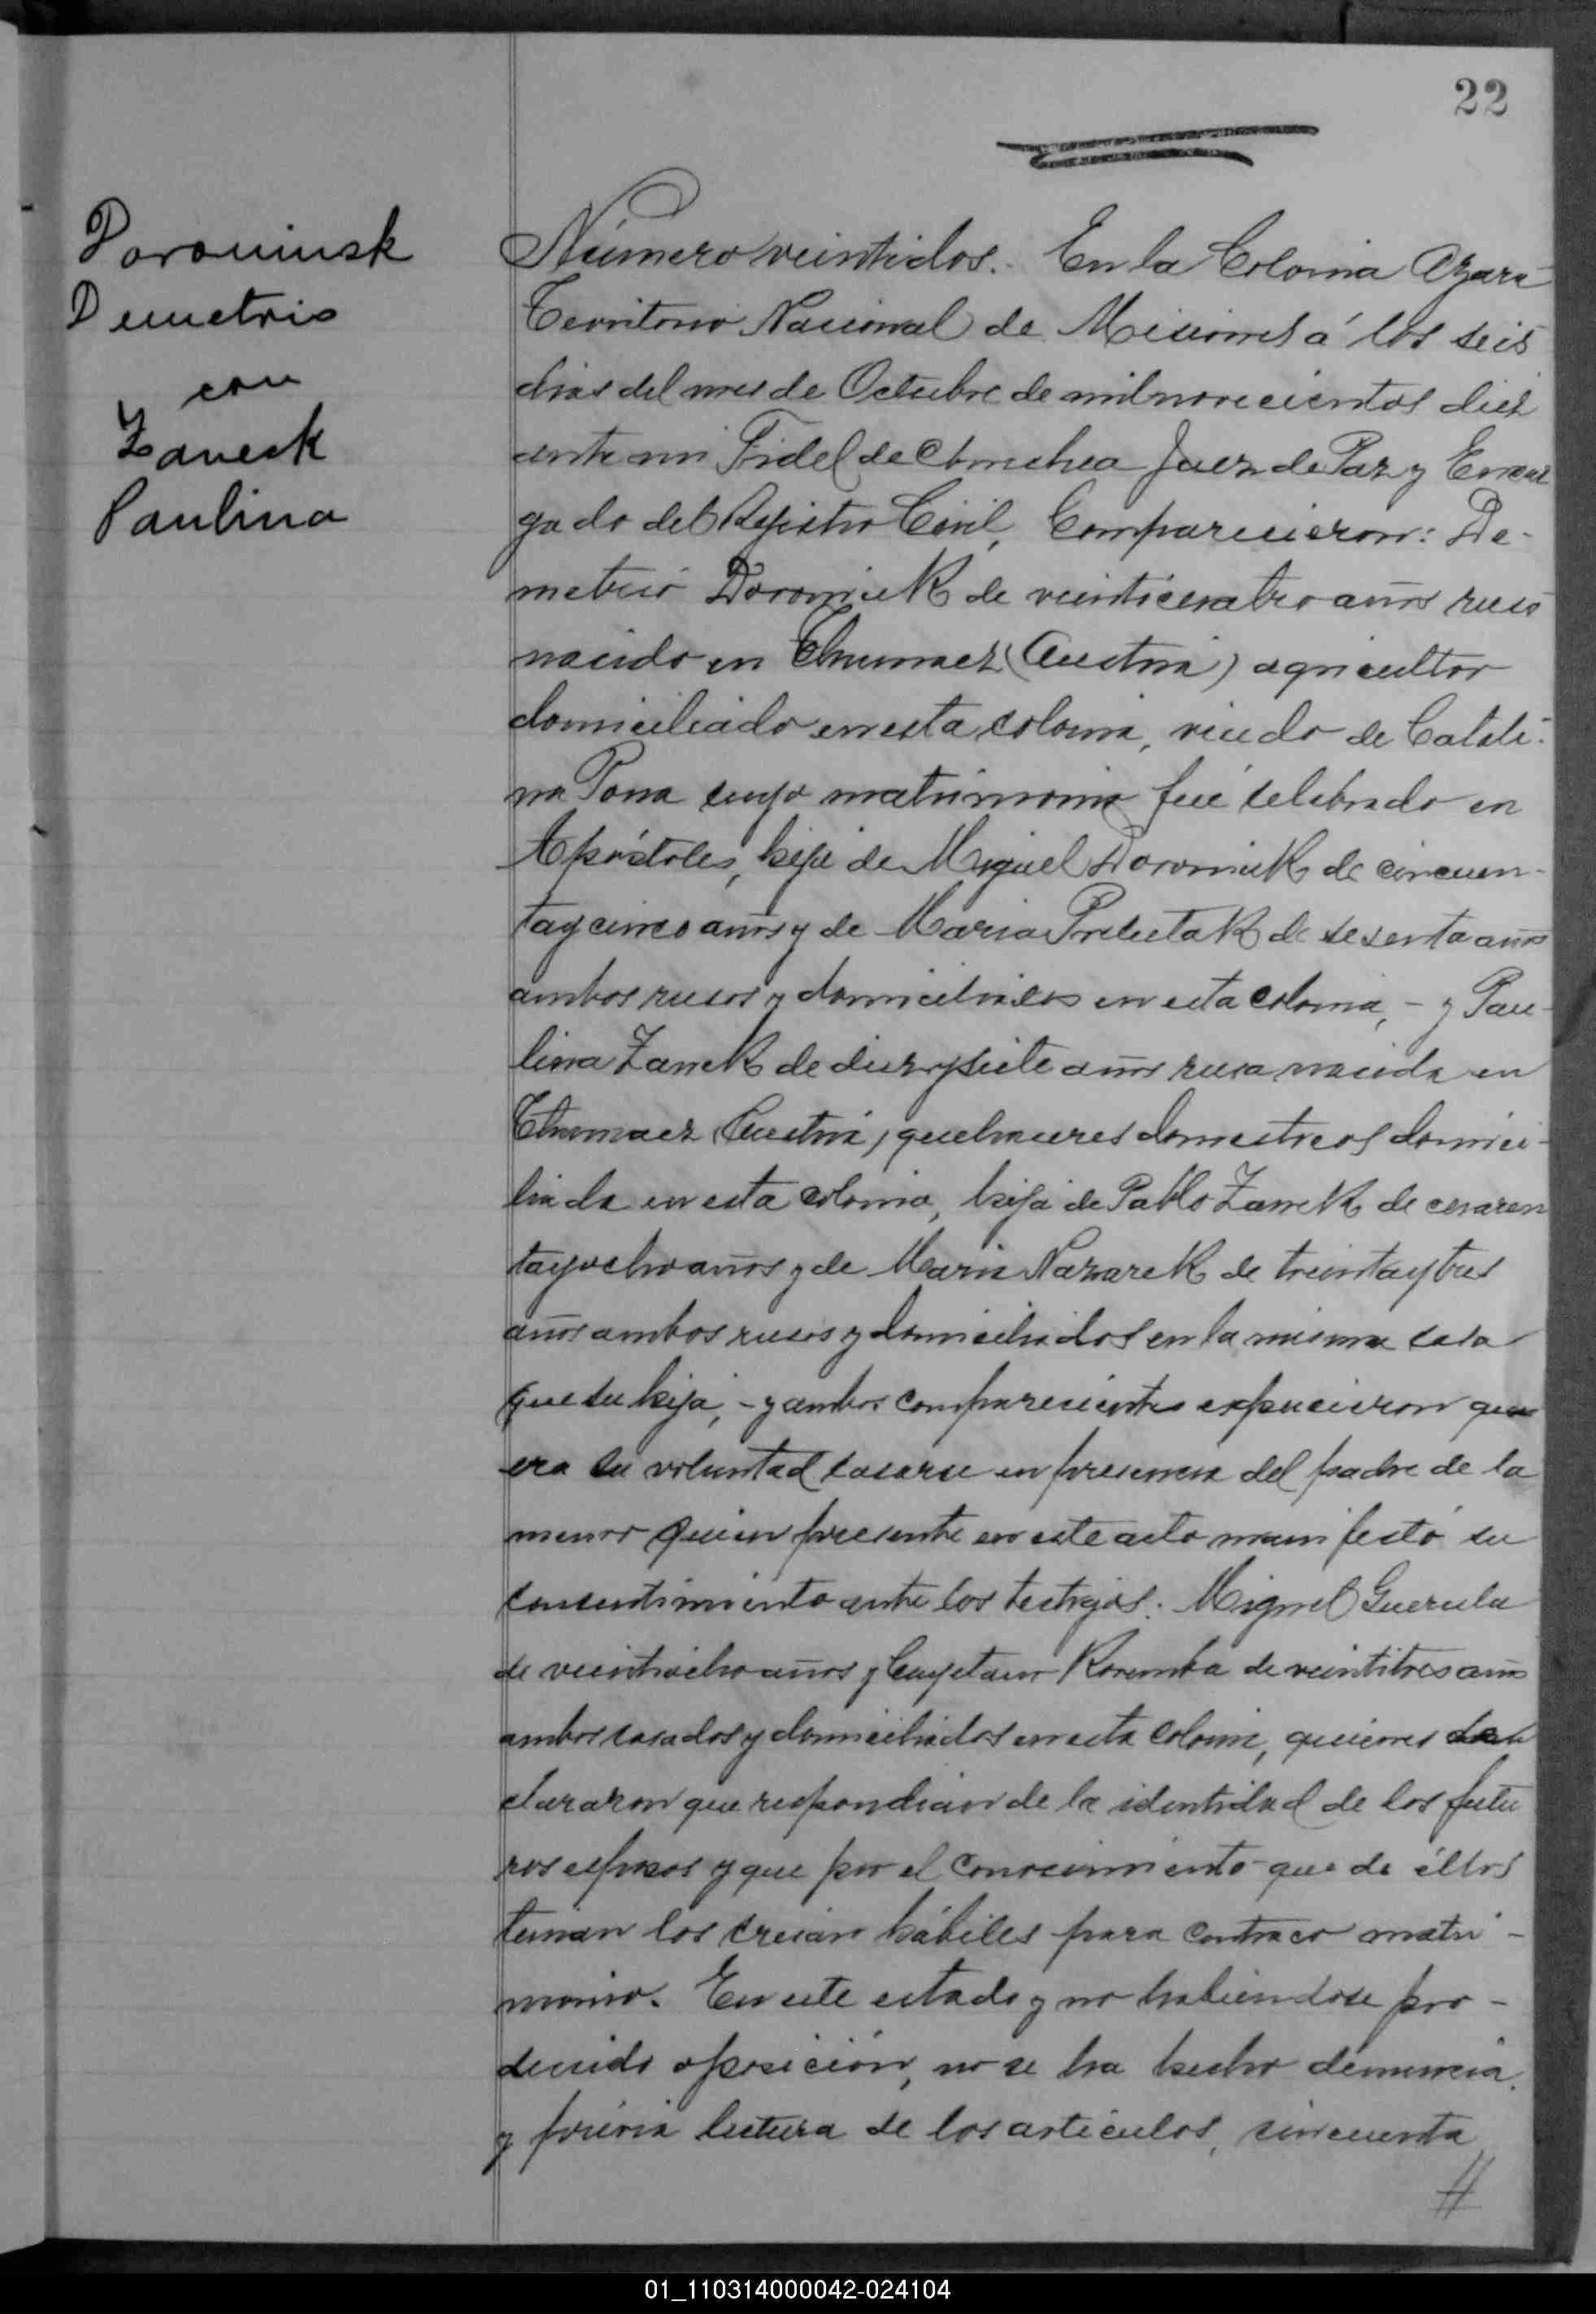 22
Doroniusk
Demetrio
con
Zaneck
Paulina
Número veintidos. En la Colonia Azara
Territorio Nacional de Misiones á los seis
dias del mes de Octubre de mil novecientos diez
ante mi Fidel de Juez de Paz y Encar
gado del Registro Civil, Comparecieron: De-
metrio Doroniuk de veinticuatro años ruso
nacido en (Austria) agricultor
domiciliado en esta colonia, viudo de Catali-
na Pona cuyo matrimonio fué celebrado en
Apóstoles, hijo de Miguel Doroniuk de cincuen-
tay cinco años y de Maria de sesenta años
ambos rusos y domiciliados en esta colonia, - y Pau-
lina Zanek de diez y siete años rusa nacida en
(Austria) quehaceres domesticos domici-
liada en esta colonia, hija de Pablo Zanek de cuaren
tayocho años y de Maria Nazarek de treintaytres
años ambos rusos y domiciliados en la misma casa
que su hija, - y ambos comparecientes expusieron que
era su voluntad casarse en presencia del padre de la
menor quien presente en este acto manifestó su
consentimiento ante los testigos: Miguel Guerula
de veintiocho años y Cayetano Koremba de veintitres años
ambos casados y domiciliados en esta colonia, quienes
clararon que respondian de la identidad de los futu
ros esposos y que por el conocimiento que de éllos
tenian los creian hábiles para contraer matri-
monio. En este estado y no habiendose pro-
ducido oposición, no se ha hecho denuncia
y prévia lectura de los articulos, cincuenta
//
01_110314000042-024104